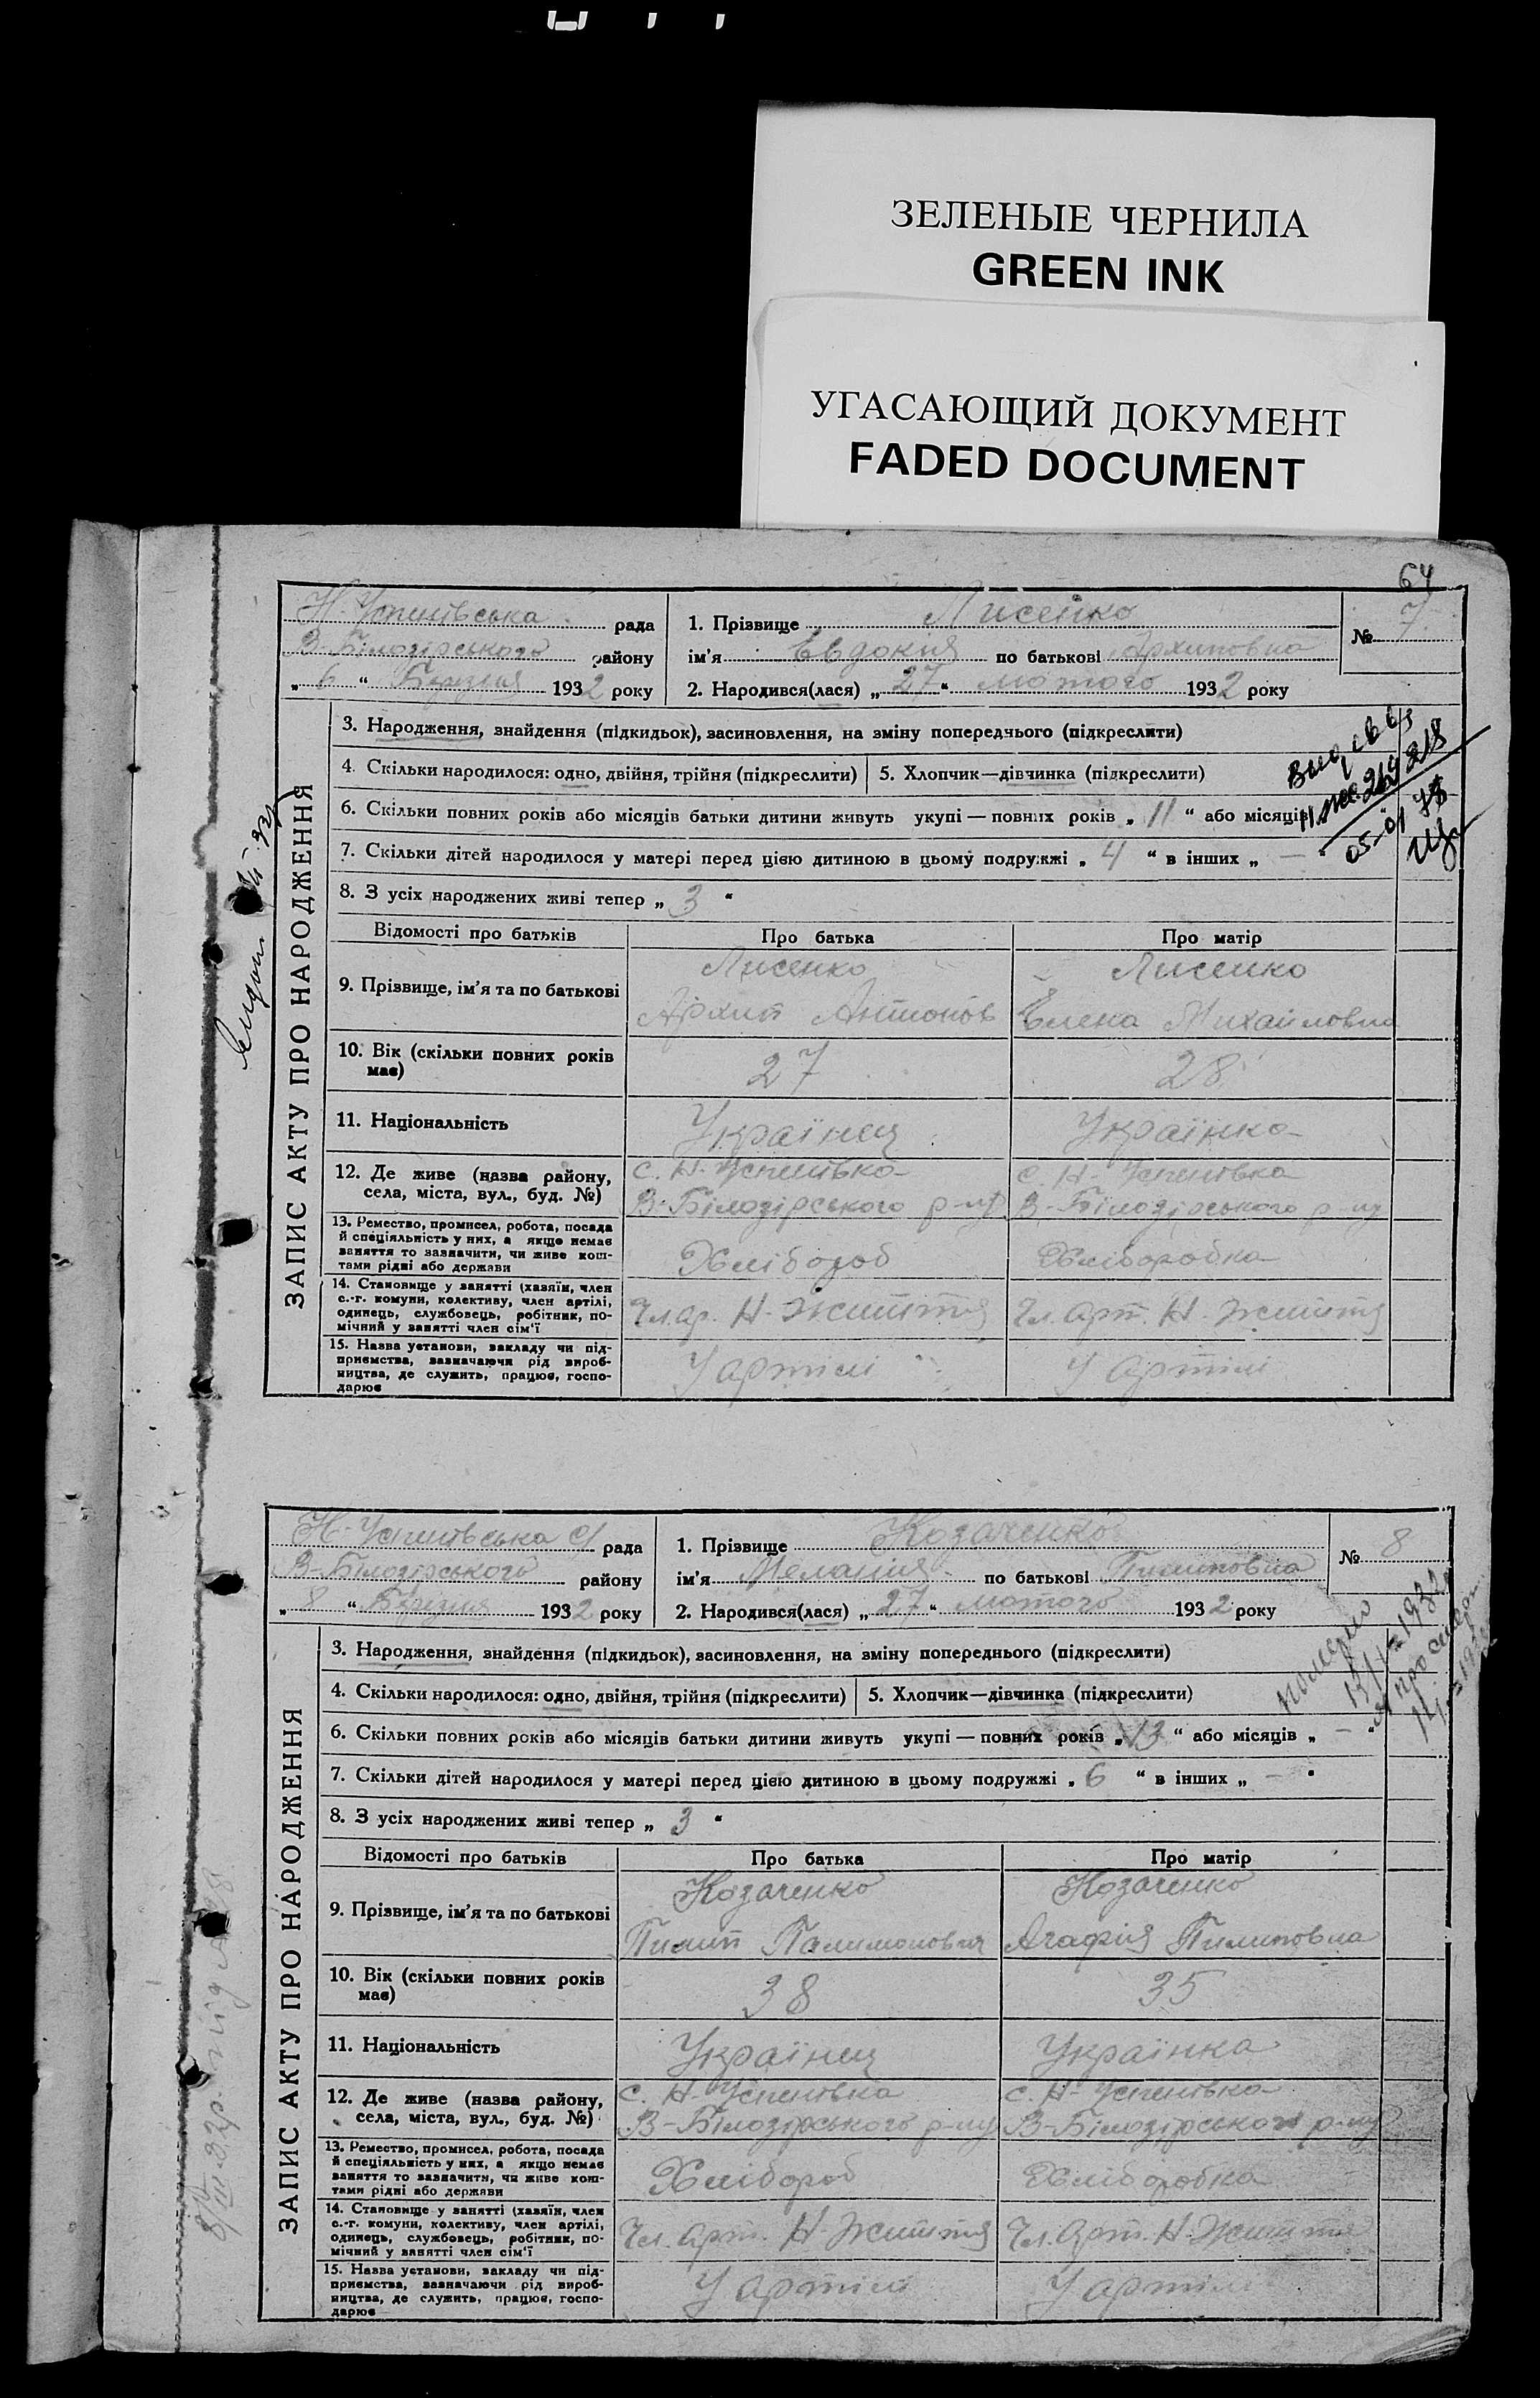 ЗЕЛЕНЫЕ ЧЕРНИЛА
GREEN INK
УГАСАЮЩИЙ ДОКУМЕНТ
FADED DOCUMENT
64
ЗАПИС АКТУ ПРО НАРОДЖЕННЯ
Н-Успенівська рада
В-Білозірського району
„ 6 “ Березня 1932 року
1. Прізвище Лисенко
ім’я Євдокія по батькові Архиповна
2. Народився(лася) „ 27 “ лютого 1932 року
№ 7
3. Народження, знайдення (підкидьок), засиновлення, на зміну попереднього (підкреслити)
4. Скільки народилося: одно, двійня, трійня (підкреслити)
5. Хлопчик—дівчинка (підкреслити)
6. Скільки повних років або місяців батьки дитини живуть укупі — повних років „ 11 “ або місяців
7. Скільки дітей народилося у матері перед цією дитиною в цьому подружжі „ 4 “ в інших „ — “
8. З усіх народжених живі тепер „ 3 “
Відомості про батьків
Про батька
Про матір
9. Прізвище, ім’я та по батькові
Лисенко
Архип Антонов
Лисенко
Єлена Михайловна
10. Вік (скільки повних років має)
27
28
11. Національність
Українец
Українка
12. Де живе (назва району,
села, міста, вул., буд. №)
с. Н-Успенівка
В-Білозірського р-ну
с. Н-Успенівка
В-Білозірського р-ну
13. Ремество, промисел, робота, посада
й спеціяльність у них, а якщо немає
заняття то зазначити, чи живе кош-
тами рідні або держави
Хлібороб
Хліборобка
14. Становище у занятті (хазяїн, член
с.-г. комуни, колективу, член артілі,
одинець, службовець, робітник, по-
мічний у занятті член сім’ї
Чл. ар. Н-Життя
Чл. арт. Н-Життя
15. Назва установи, закладу чи під-
приємства, зазначаючи рід вироб-
ництва, де служить, працює, госпо-
дарює
У артілі
У артілі
ЗАПИС АКТУ ПРО НАРОДЖЕННЯ
Н-Успенівська с/ рада
В-Білозірського району
„ 8 “ Березня 1932 року
1. Прізвище Козаченко
ім’я Меланія по батькові Пилиповна
2. Народився(лася) „ 27 “ лютого 1932 року
№ 8
3. Народження, знайдення (підкидьок), засиновлення, на зміну попереднього (підкреслити)
4. Скільки народилося: одно, двійня, трійня (підкреслити)
5. Хлопчик—дівчинка (підкреслити)
6. Скільки повних років або місяців батьки дитини живуть укупі — повних років „ 13 “ або місяців „ — “
7. Скільки дітей народилося у матері перед цією дитиною в цьому подружжі „ 6 “ в інших „ — “
8. З усіх народжених живі тепер „ 3 “
Відомості про батьків
Про батька
Про матір
9. Прізвище, ім’я та по батькові
Козаченко
Пилип
Козаченко
Агафія Пилиповна
10. Вік (скільки повних років має)
38
35
11. Національність
Українец
Українка
12. Де живе (назва району,
села, міста, вул., буд. №)
с. Н-Успенівка
В-Білозірського р-ну
с. Н-Успенівка
В-Білозірського р-ну
13. Ремество, промисел, робота, посада
й спеціяльність у них, а якщо немає
заняття то зазначити, чи живе кош-
тами рідні або держави
Хлібороб
Хліборобка
14. Становище у занятті (хазяїн, член
с.-г. комуни, колективу, член артілі,
одинець, службовець, робітник, по-
мічний у занятті член сім’ї
Чл. арт. Н-Життя
Чл. арт. Н-Життя
15. Назва установи, закладу чи під-
приємства, зазначаючи рід вироб-
ництва, де служить, працює, госпо-
дарює
У артілі
У артілі